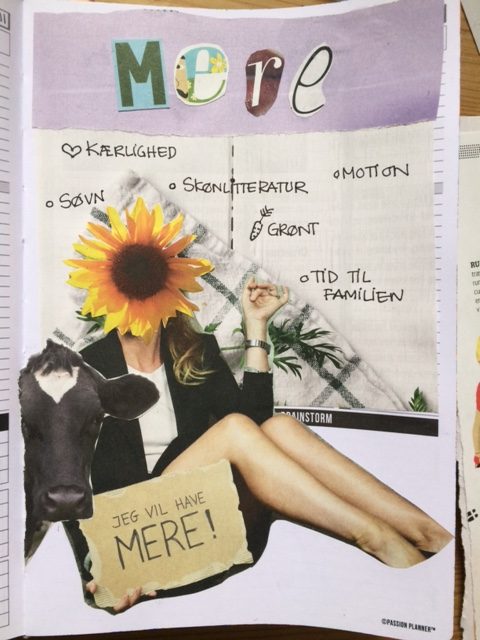 Mere
♡ KÆRLIGHED
o SØVN
o SKØNLITTERATUR
o MOTION
GRØNT
o TID TIL
FAMILIEN
BRAINSTORM
JEG VIL HAVE
MERE!
©PASSION PLANNER™